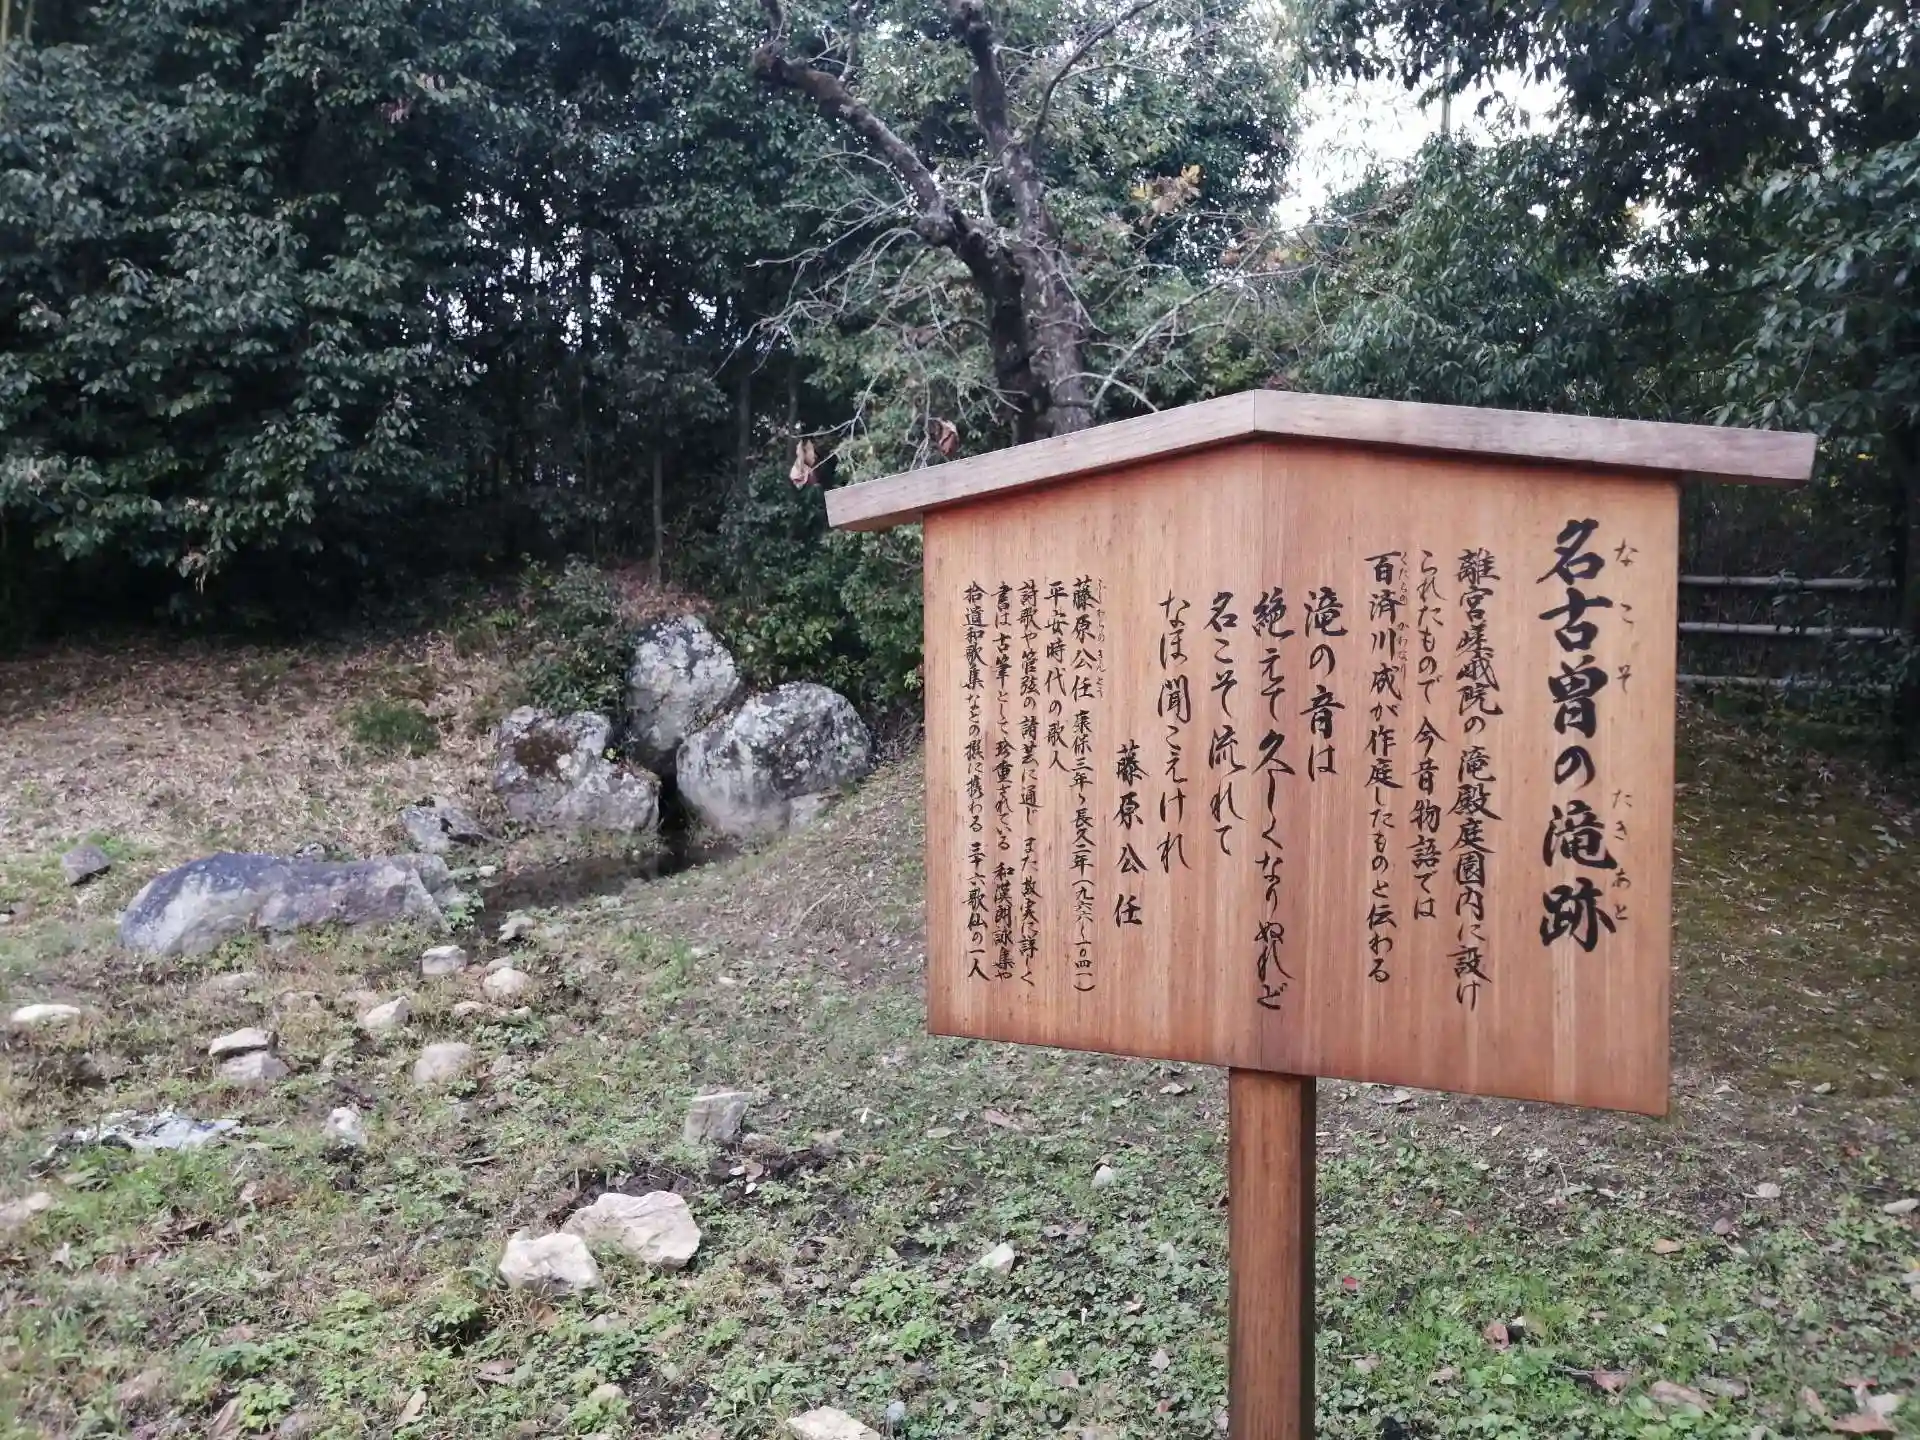 名古曽の滝跡
なこそ たきあと
離宮嵯峨院の滝殿庭園内に設け
られたもので 今昔物語では
百済川成が作庭したものと伝わる
くだらの かわなり
滝の音は
絶えて久しくなりぬれど
名こそ流れて
なほ聞こえけれ
藤原公任
藤原公任 康保三年〜長久二年(九六六〜一〇四一)
ふじわらのきんとう
平安時代の歌人
詩歌や管弦の諸芸に通じ また故実に詳しく
書は古筆として珍重されている 和漢朗詠集や
拾遺和歌集などの撰に携わる 三十六歌仙の一人